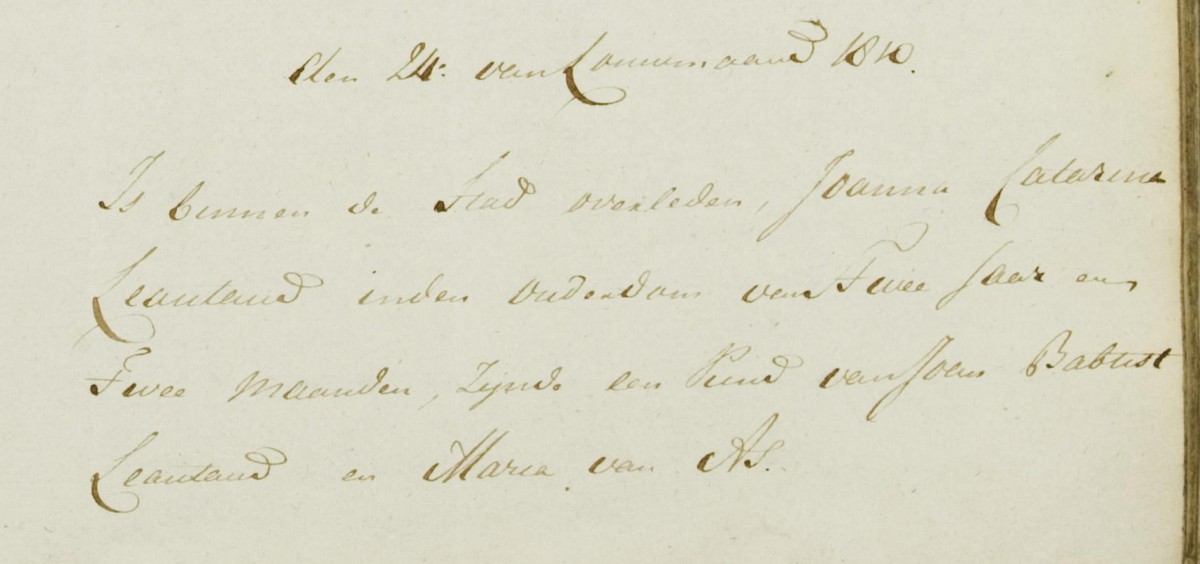 den 24e van Louwmaand 1810.
Is binnen de Stad overleden, Joanna Catarina
Leautaud inden ouderdom van Twee Jaar en
Twee Maanden, zijnde een Kind van Joan Babtist
Leautaud en Maria van As.